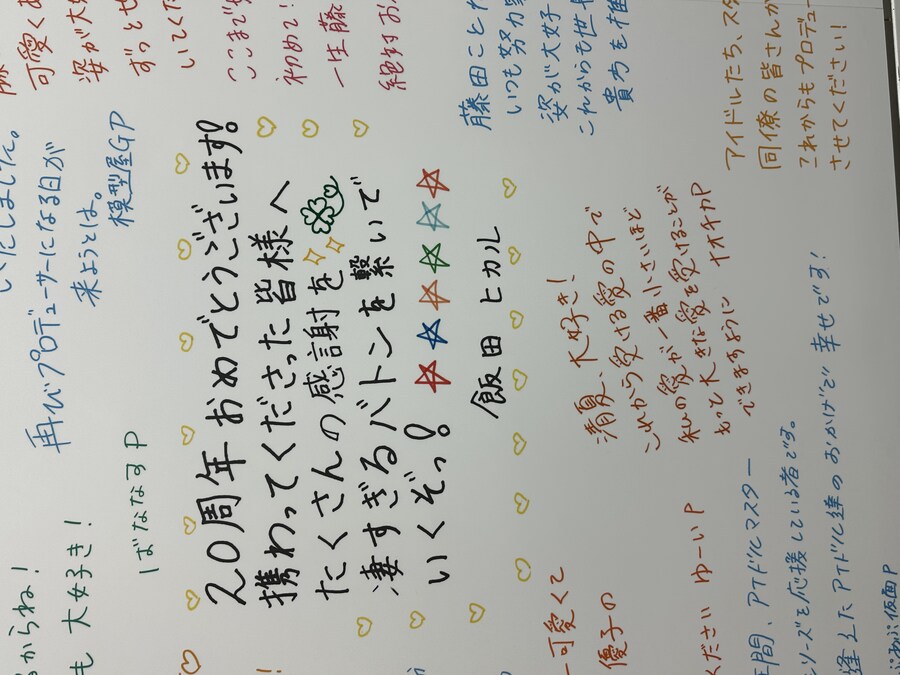 可愛く
姿が大
ずっと
いてく
ここまで
初めて
一生藤
絶対お
藤田ことね
いつも努力
姿が大好
これからも
貴方を推
アイドルたち、
同僚の皆さん
これからもプロデュー
させてください!
いたしました。
再びプロデューサーになる日が
来ようとは。
模型屋GP
20周年おめでとうございます!
携わってくださった皆様へ
たくさんの感謝を
凄すぎるバトンを繋いで
いくぞっ!
飯田 ヒカル
清夏、大好き!
これから受ける愛の中で
私の愛が一番小さいほど
もっと大きな愛を受けることが
できますように
オオチカP
からね!
も 大好き!
ばななすP
一可愛くて
優子の
ください ゆーいP
年間、アイドルマスター
シリーズを応援している者です。
達のおかげで幸せです!
仮面P